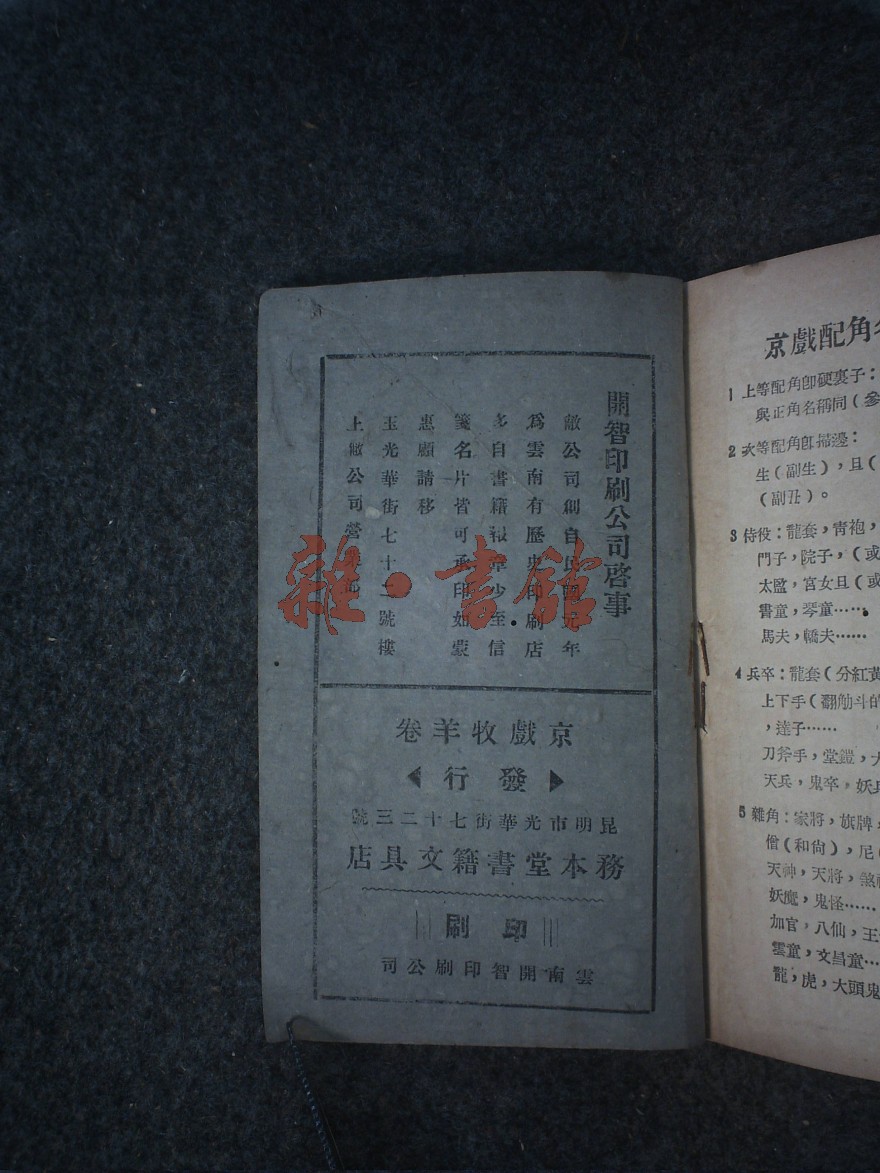 開智印刷公司啓事
敝公司創自民國元年
爲雲南有歷史印刷店
多自書籍報章少至信
箋名片皆可承印如蒙
惠顧請移
玉光華街七十二號樓
上敝公司營
京戲牧羊卷
發行
昆明市光華街七十二三號
務本堂書籍文具店
印刷
雲南開智印刷公司
京戲配角
1 上等配角卽硬裏子：
與正角名稱同（參
2 次等配角卽掃邊：
生（副生），旦（
（副丑）。
3 侍役：龍套，青袍，
門子，院子，（或
太監，宮女旦（或
書童，琴童……
馬夫，轎夫……
4 兵卒：龍套（分紅黃
上下手（翻觔斗的
，達子……
刀斧手，堂鎧，
天兵，鬼卒，妖兵
5 雜角：家將，旗牌，
僧（和尙），尼（
天神，天將，煞
妖魔，鬼怪……
加官，八仙，王
雲童，文昌童…
龍，虎，大頭鬼
雜·書館